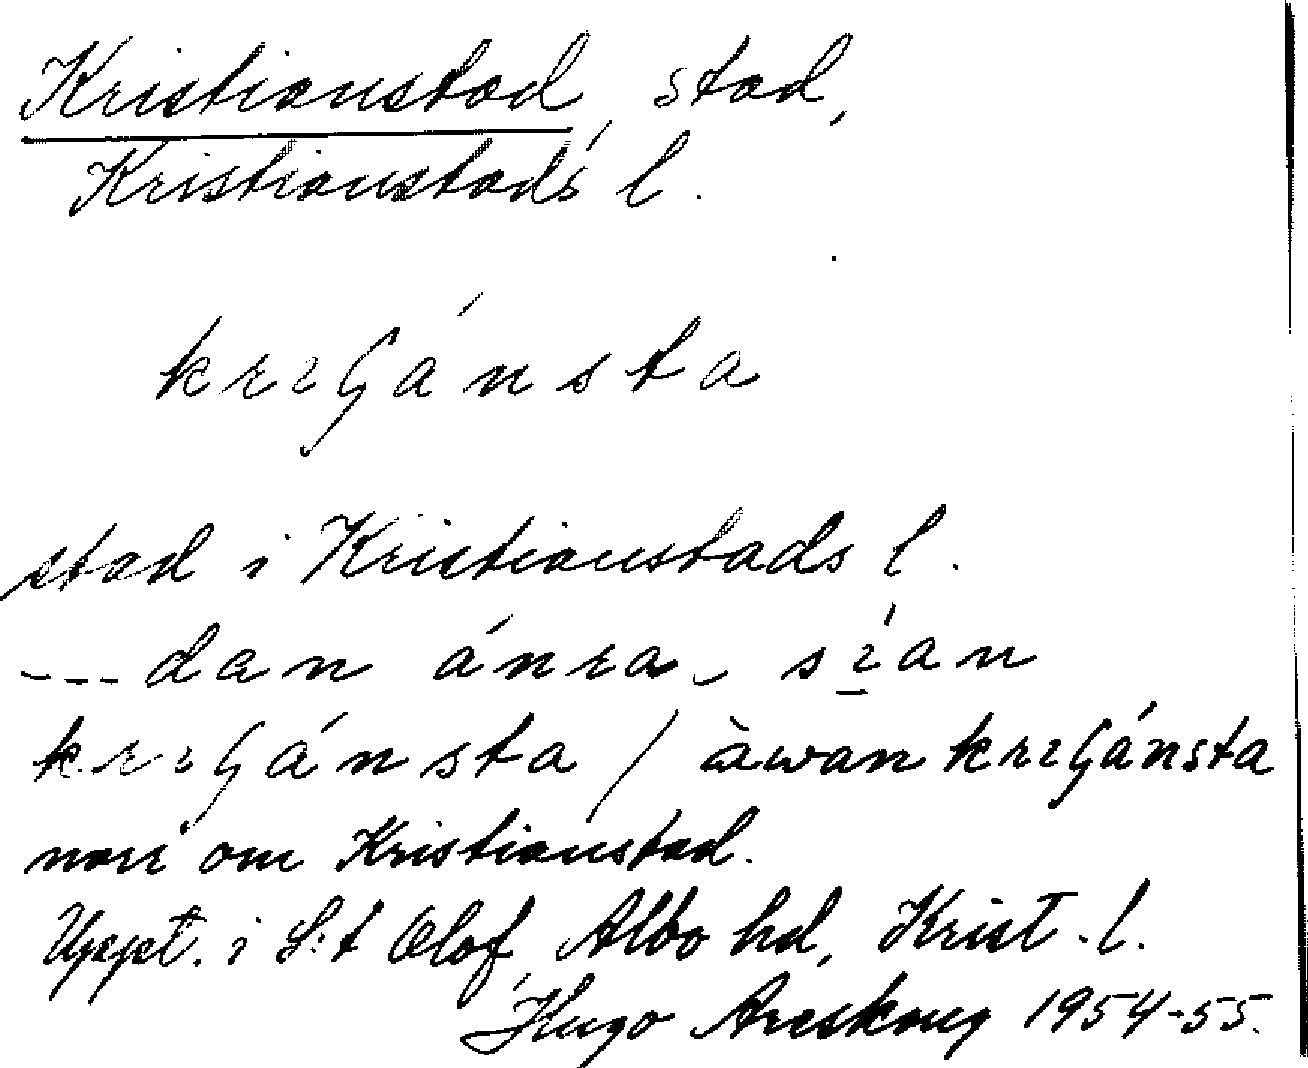 Kristianstad, stad,
Kristianstads l.
krıʃánsta
stad i Kristianstads l.
--- dan ánra, sı̱́an
krıʃánsta / àwan krıʃánsta
norr om Kristianstad.
Uppt. i S:t Olof, Albo hd, Krist. l.
Hugo Areskoug 1954-55.